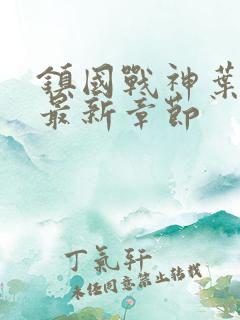 鎮國戰神葉
最新章節
丁氣軒
未經同意禁止轉載